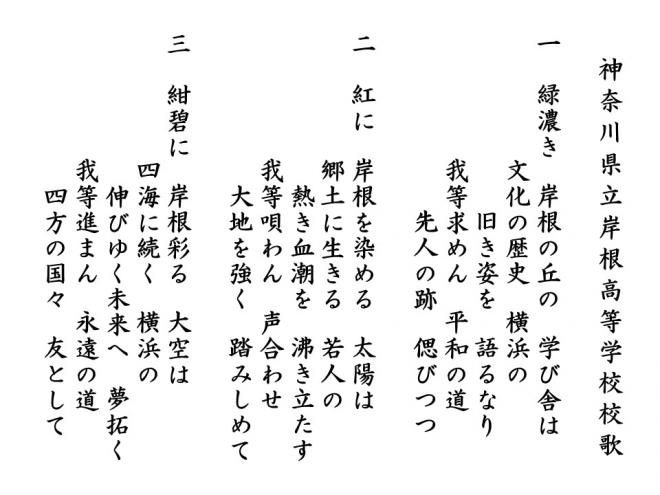 神奈川県立岸根高等学校校歌
一 緑濃き 岸根の丘の 学び舎は
文化の歴史 横浜の
旧き姿を 語るなり
我等求めん 平和の道
先人の跡 偲びつつ
二 紅に 岸根を染める 太陽は
郷土に生きる 若人の
熱き血潮を 沸き立たす
我等唄わん 声合わせ
大地を強く 踏みしめて
三 紺碧に 岸根彩る 大空は
四海に続く 横浜の
伸びゆく未来へ 夢拓く
我等進まん 永遠の道
四方の国々 友として